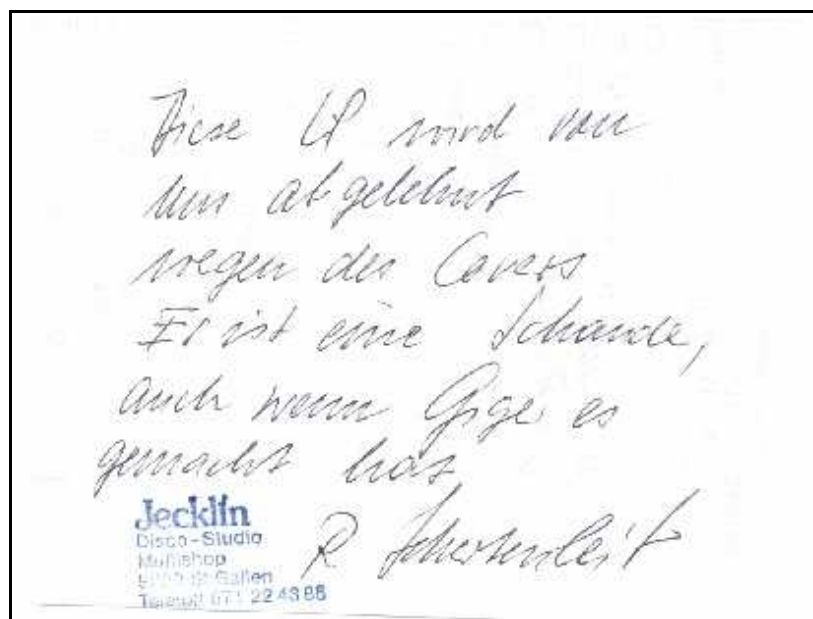 Diese LP wird von
uns abgelehnt
wegen des Covers
Er ist eine Schande,
auch wenn Giger es
gemacht hat
R Schertenleib
Jecklin
Disco-Studio
Multishop
9000 St. Gallen
Telefon 071 22 43 86